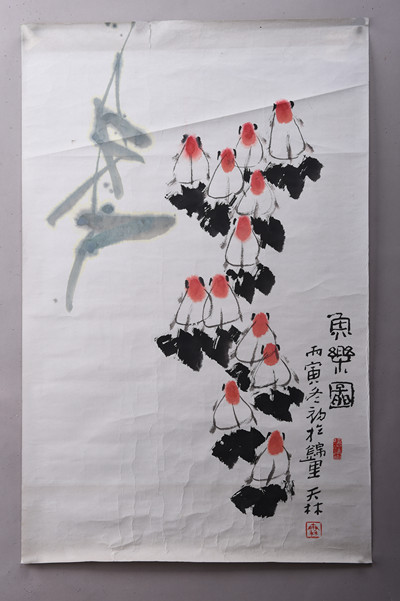 魚樂圖
丙寅冬初於錦里 天林